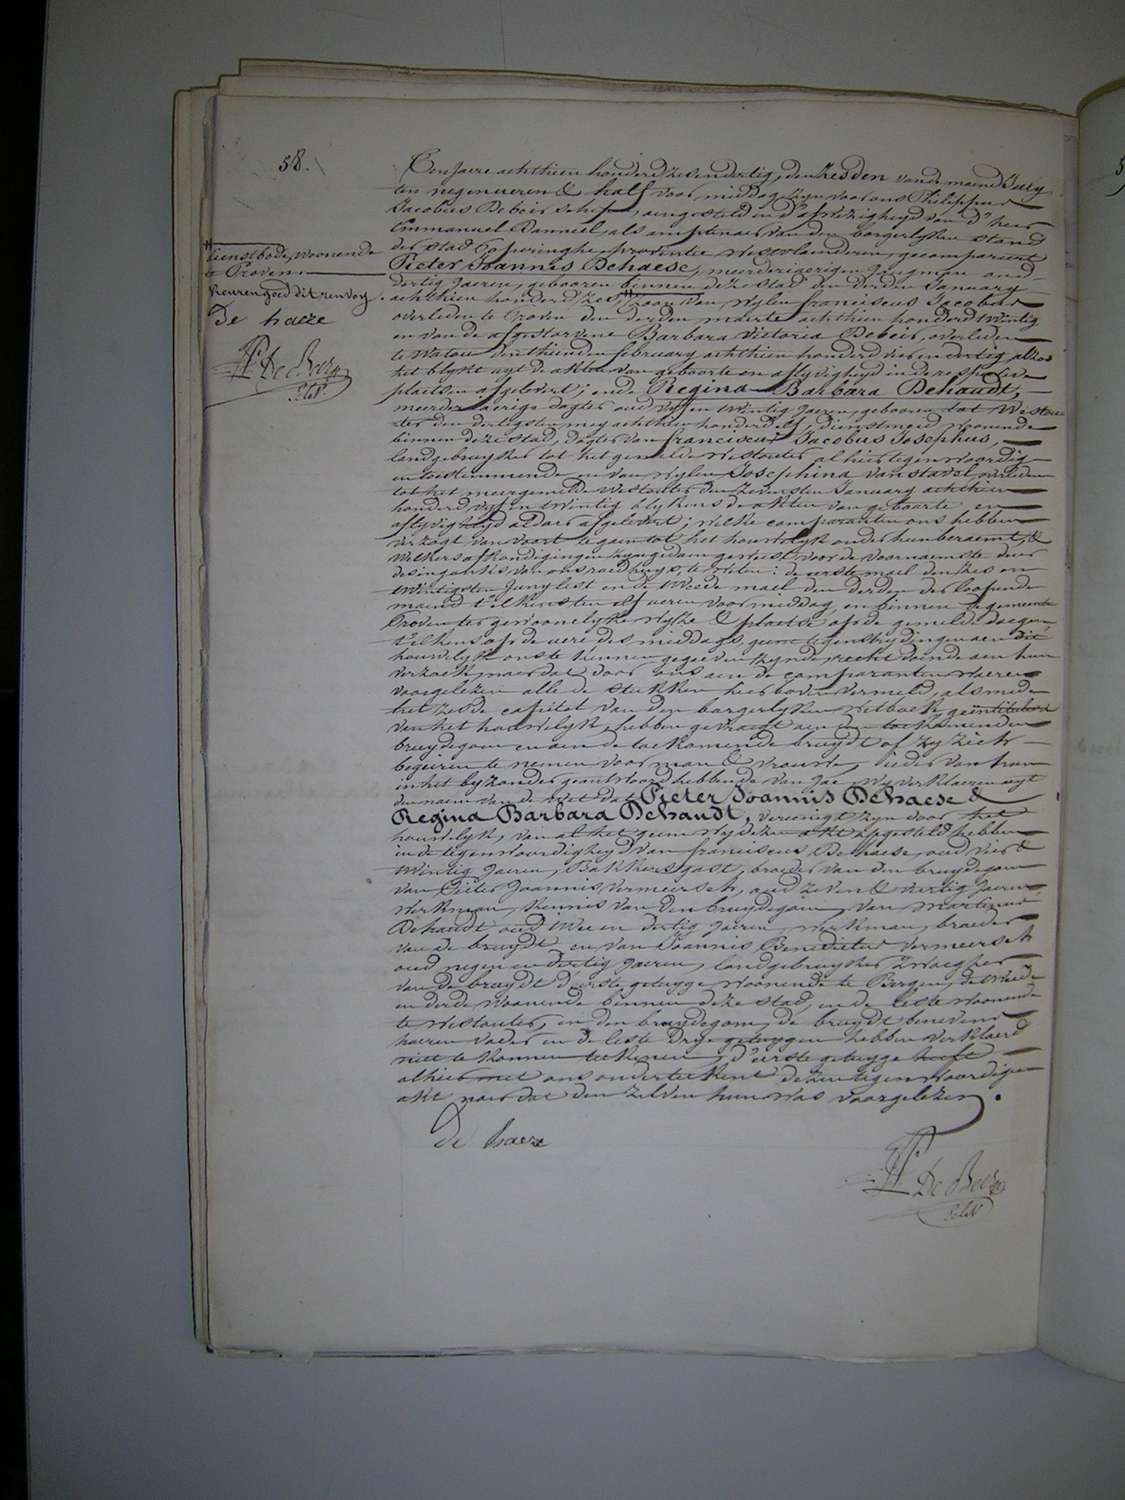 58.
Den Jaere achthien honderd zesendertig, den zesden van de maend July
ten negen ueren & half voor middag zyn voor ons Philippus
Jacobus De Boeir schepen, aengesteld in d'afwezigheyd van d'heer
Emmanuel Danneel, als amptenaer van den borgerlyken stand
der stad Poperinghe, provintie Westvlaenderen, gecompareert
Pieter Joannis Dehaese, meerderjaerigen jongman oud
dertig Jaeren, gebooren binnen deze stad den derden January
achthien honderd zes, zoon van wylen franciscus Jacobus
overleden te Proven den derden maerte achthien honderd twintig
en van de afgestorvene Barbara Victoria Debeir, overleden
te Watou den thienden february achthien honderd vier en dertig, alles
het blykt uyt de akten van geboorte en aflyvigheyd in de respective
plaetsen afgelevert; ende Regina Barbara Dehaudt,
meerderjaerige dogter oud vyf en twintig Jaeren, geboren tot Westouter
den dertigsten mey achthien honderd elf, dienstmeid woonende
binnen deze stad, dogter van franciscus Jacobus Josephus,
landgebruyker tot het gemelde Westouter alhier tegenwoordig
en toestemmende en van wylen Josephina Vanstavel, overleden
tot het meergemelde Westouter den zevensten January achthien
honderd vyf en twintig blykens de akten van geboorte en
aflyvigheyd aldaer afgelevert; welke comparanten ons hebben
verzogt van voort te gaen tot het houwelyk onder hun beraemt, &
welkers afkondigingen zyn gedaen geweest voor de voornaemste deur
des ingangs van ons raedhuys, te weten: de eerste mael den zes en
twintigsten Juny lest en de tweede mael den derden der loopende
maend t'elkens ten elf ueren voor middag, en binnen de gemeente
Proven ter gewoonelyke wyze & plaetse op de gemelde dagen
t'elkens op de uere des middags, geene tegenstrydingen aen dit
houwelyk ons te kennen gegeven zynde, recht doende aen hun
verzoek, naer dat door ons aen de comparanten waeren
voorgelezen alle de stukken hier boven vermeld, als mede
het zesde capitel van den borgerlyken wetboek geïntituleerd
van het houwelyk, hebben gevraegt aen den toekomenden
bruydegom en aen de toekomende bruydt of zy zich
begeiren te nemen voor man & vrouw, ieder van hun
in het byzonder geantwoord hebbende van Jae, wy verklaeren uyt
den naem van de wet dat Pieter Joannis Dehaese &
Regina Barbara Dehaudt, vereenigt zyn door het
houwelyk, van al het geene wy dezen akt opgesteld hebben
in de tegenwoordigheyd van franciscus Dehaese, oud vier &
twintig Jaeren, Bakkersgast, broeder van den bruydegom
van Pieter Joannis Vermeersch, oud zeven & veertig Jaeren
werkman, kennis van den bruydegom, van Martinus
Dehaudt oud twee en dertig Jaeren, werkman, broeder
van de bruydt en van Joannis Benedictus Vermeersch
oud negen en dertig Jaeren, landgebruyker zwaeger
van de bruydt d'eerste getuyge woonende te Bergen, de tweede
en derde woonende binnen deze stad, en de leste woonende
te Westouter, en den bruydegom, de bruydt benevens
haeren vader en de leste drye getuygen hebben verklaerd
niet te konnen teekenen, d'eerste getuyge heeft
alhier met ons onderteekent dezen tegenwoordigen
akt naer dat den zelven hun was voorgelezen.
De haeze
dienstbode, woonende
te Proven.
Keuren goed dit renvoy.
De haeze